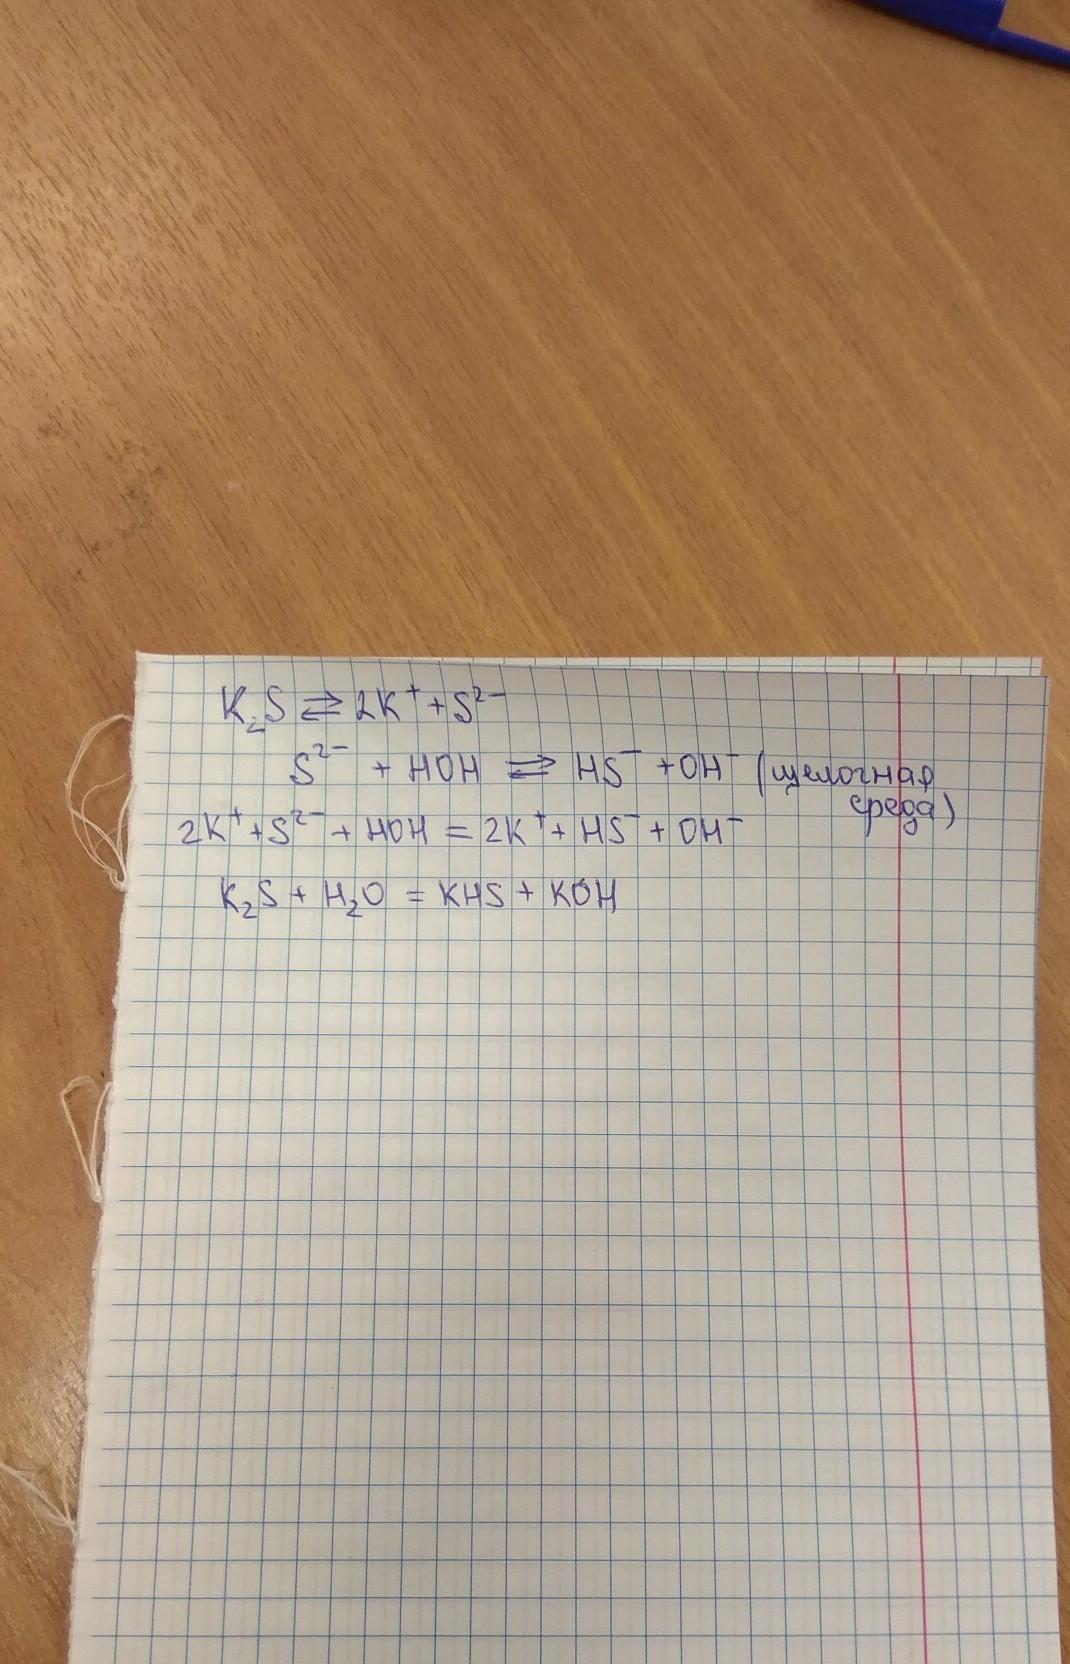 K₂S ⇄ 2K⁺ + S²⁻
S²⁻ + HOH ⇄ HS⁻ + OH⁻ (щелочная
среда)
2K⁺ + S²⁻ + HOH = 2K⁺ + HS⁻ + OH⁻
K₂S + H₂O = KHS + KOH